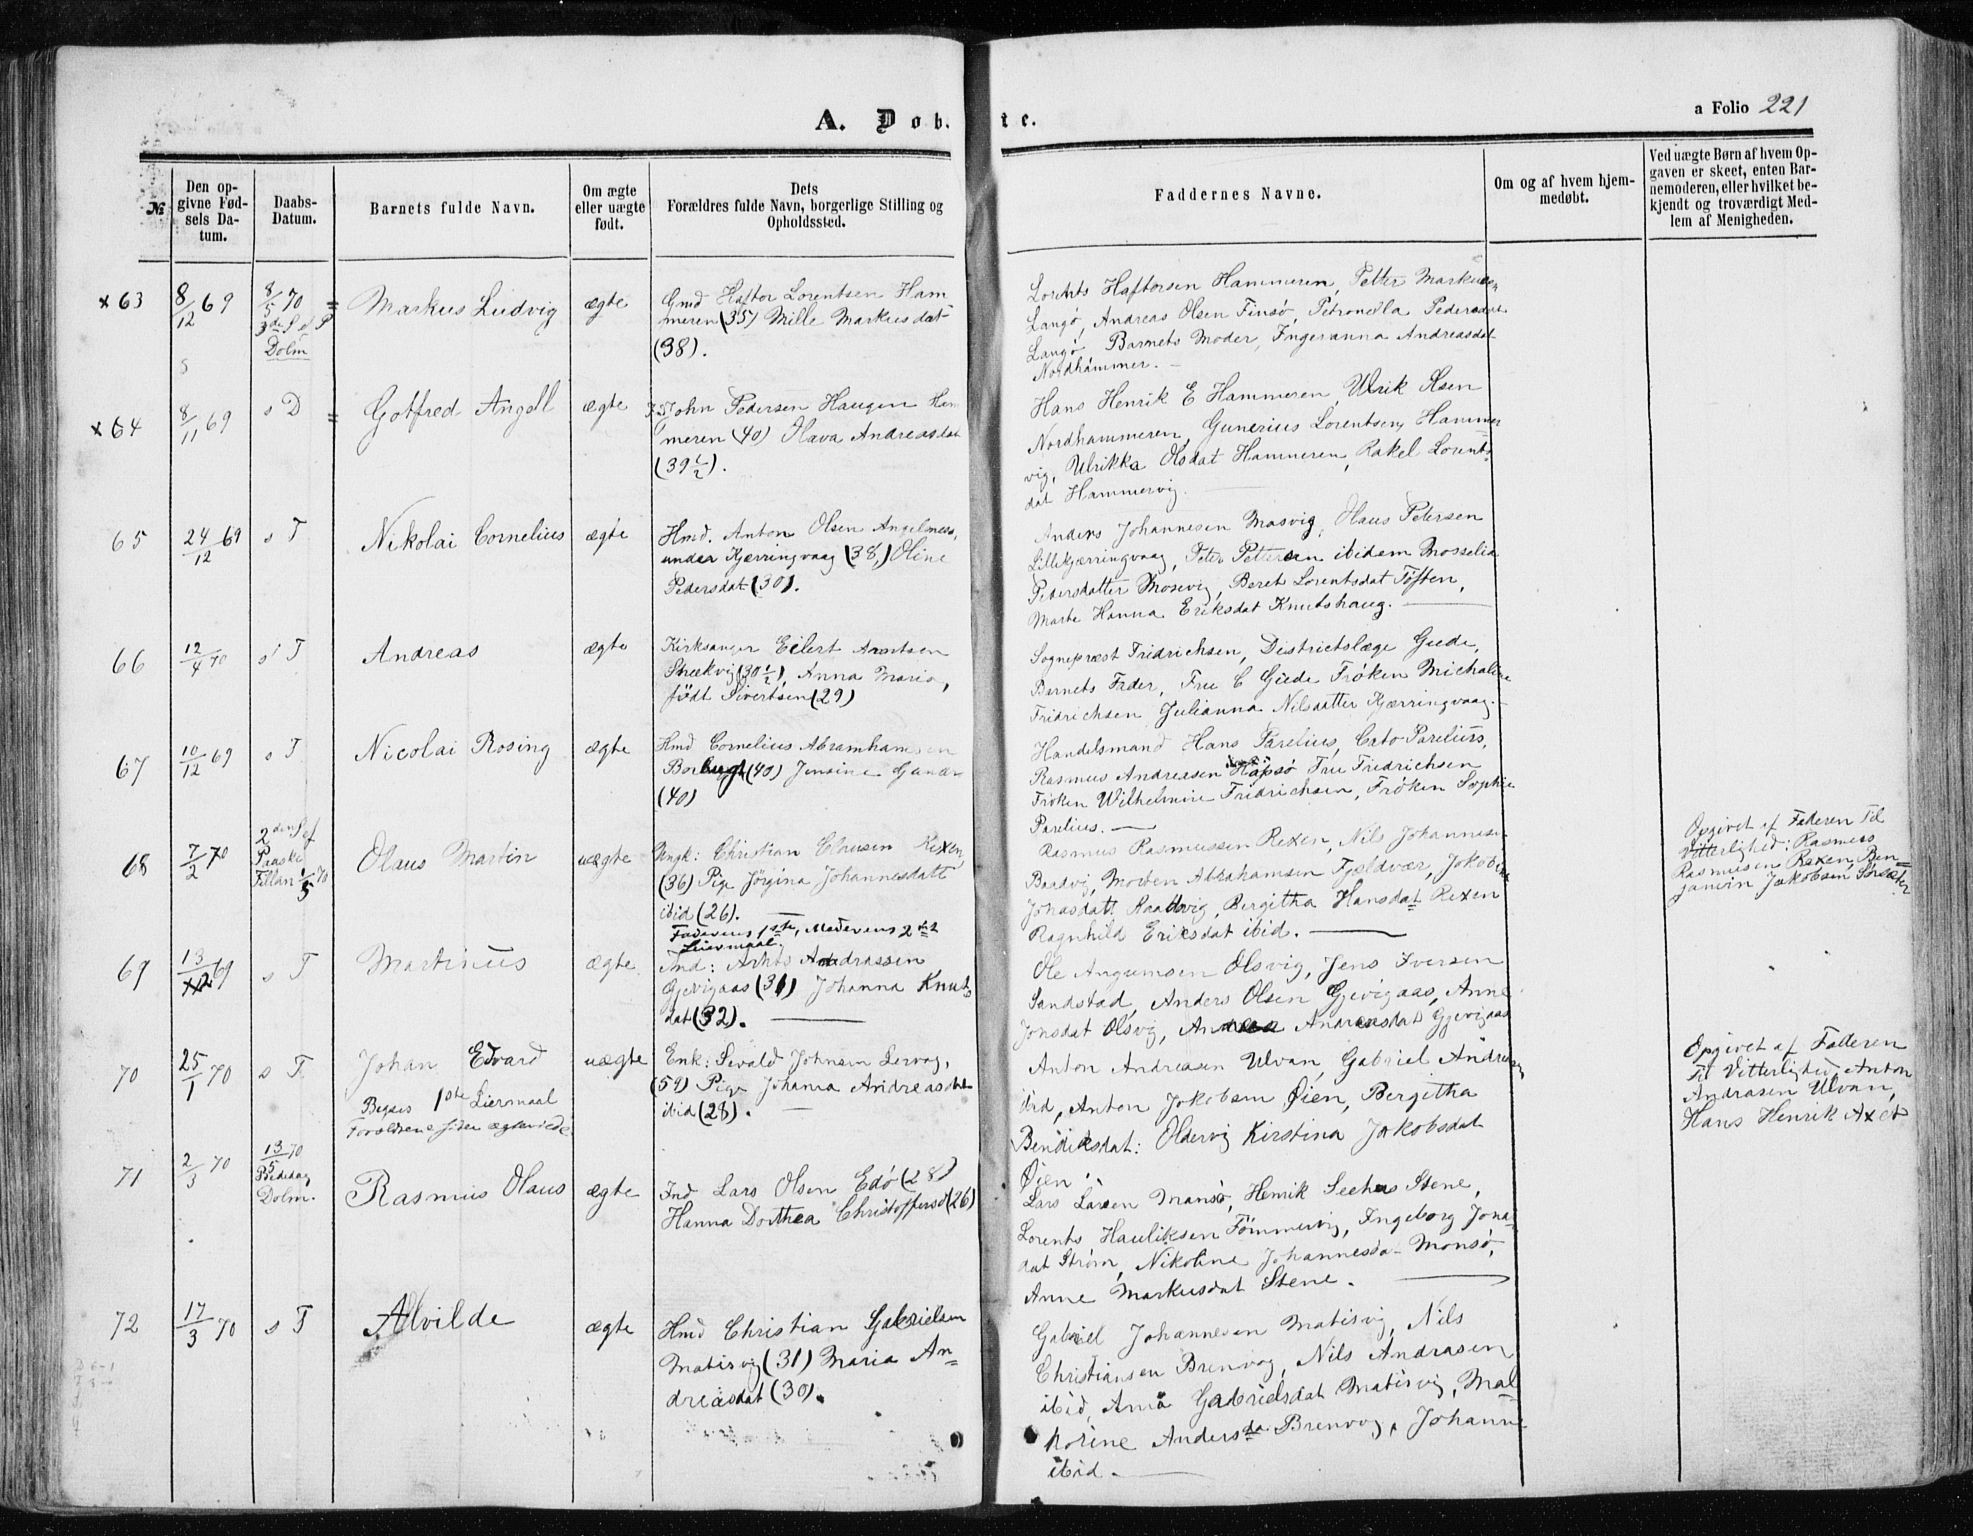 A. Døb. te.
a Folio 221
№
Den op-
givne Fød-
sels Da-
tum.
Daabs-
Datum.
Barnets fulde Navn.
Om ægte
eller uægte
født.
Dets
Forældres fulde Navn, borgerlige Stilling og
Opholdssted.
Faddernes Navne.
Om og af hvem hjem-
medøbt.
Ved uægte Børn af hvem Op-
gaven er skeet, enten Bar-
nemoderen, eller hvilket be-
kjendt og troværdigt Med-
lem af Menigheden.
x 63
8/12 69
8/5 70
3de S ef P
Dolm
Markus Ludvig
ægte
Gmd Haftor Lorentsen Ham-
meren (35) Mille Markusdat
(38).
Lorents Haftorsen Hammeren, Petter Markusen
Langø, Andreas Olsen Finsø, Petronella Pedersdat
Langø, Barnets Moder, Ingeranna Andreasdat
Nordhammer. -
x 64
8/11 69
s D
Gotfred Angell
ægte
John Pedersen Haugen Ham
meren (40) Olava Andreasdat
(39 1/2).
Hans Henrik E Hammeren, Ulrik Olsen
Nordhammeren, Gunerius Lorentsen Hammer
vig, Ulrikka Olsdat Hammeren, Rakel Lorents-
dat Hammervig.
65
24/12 69
s T
Nikolai Cornelius
ægte
Hmd. Anton Olsen Angelsnes,
under Kjerringvaag (38,) Oline
Pedersdat (30).
Anders Johannesen Masvig, Olaus Petersen
Lillekjærringvaag, Peter Pettersen ibidem Mosselia
Pedersdatter Mosevig, Beret Lorentsdat Tøften,
Marte Hanna Eriksdat Knutshaug.
66
12/4 70
s T
Andreas
ægte
Kirksanger Eilert Arntsen
Strekvig (30 1/2), Anna Maria,
født Sivertsen (29)
Sognepræst Fridrichsen, Districtslæge Giede,
Barnets Fader, Fru C Giede Frøken Michaline
Fridrichsen Julianna Nilsdatter Kjærringvaag.
67
10/12 69
s T
Nicolai Rosing
ægte
Hmd Cornelius Abramhamsen
(40) Jensine Gunder
(40)
Handelsmand Hans Parelius, Cato Parelius,
Rasmus Andreasen Hapsø Fru Fredrichsen
Frøken Wilhelmine Fridrichsen, Frøken Sophie
Parelius.
68
7/2 70
2den S ef
Paaske
Fillan 1/5 70
Olaus Martin
uægte
Ungk: Christian Clausen Rexen
(36) Pige Jørgina Johannesdatt
ibid (26).
Faderens 1ste, Moderens 2det
Leiermaal.
Rasmus Rasmussen Rexen, Nils Johannesen
Baadvig, Morten Abrahamsen Fjeldvær, Jokobine
Johasdatt Raadvig, Bergitha Hansdat Rexen
Ragnhild Eriksdat ibid.
Opgivet af Faderen Til
Vitterlighed: Rasmus
Rasmussen Rexen, Ben-
jamin Jakobsen Stræter
69
13/12 69
s T
Martinus
ægte
Ind: Arnts Andrassen
Gjevigaas (31) Johanna Knuts
dat (32).
Ole Angumsen Olsvig, Jens Iversen
Sandstad, Anders Olsen Gjevigaas, Anne
Jonsdat Olsvig, Andrea Andreasdat Gjevigaas
70
25/1 70
s T
Johan Edvard
Begges 1ste Liermaal
Forældrene siden ægteviede
uægte
Enk: Sivald Johnsen Lervag,
(59) Pige Johana Andreasdat
ibid (28).
Anton Andreasen Ulvan, Gabriel Andreasen
ibid, Anton Jokobsen Øien, Bergitha
Bendiksdat: Oldervig Kirstina Jakobsdat
Øien.
Opgivet af Faderen
Til Vitterlighed Anton
Andrasen Ulvan,
Hans Henrik Axet
71
2/3 70
13/5 70
Bededag
Dolm.
Rasmus Olaus
ægte
Ind Lars Olsen Edø (28)
Hanna Dorthea Christoffersd (26)
Lars Larsen Mansø, Henrik Seehus Stene,
Lorents Hauliksen Tømmervig, Ingeborg Jona-
dat Strøm, Nikoline Johannesda- Monsø,
Anne Markusdat Stene.
72
17/3 70
s T
Alvilde
ægte
Hmd Christian Gabrielsen
Matisvig (31) Maria An-
dreasdat (30).
Gabriel Johannesen Matisvig, Nils
Christiansen Brenvog, Nils Andrasen
ibid, Ana Gabrielsdat Matisvig, Mal
korine Andersda Brenvog, Johanne
ibid.